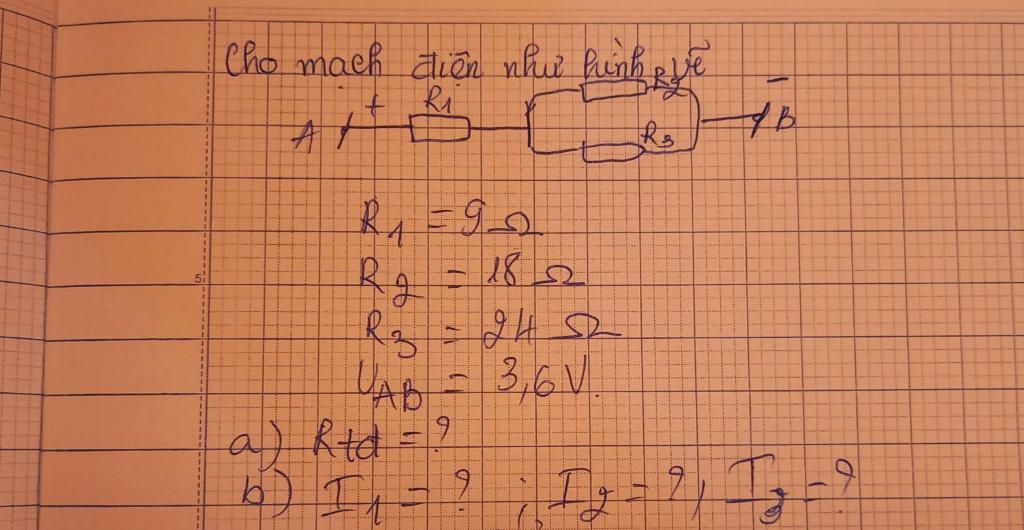 Cho mạch điện như hình vẽ
A + R1 R2 R3 - B
R1 = 9 Ω
R2 = 18 Ω
R3 = 24 Ω
UAB = 3,6 V.
a) Rtd = ?
b) I1 = ? ; I2 = ?, I3 = ?
5